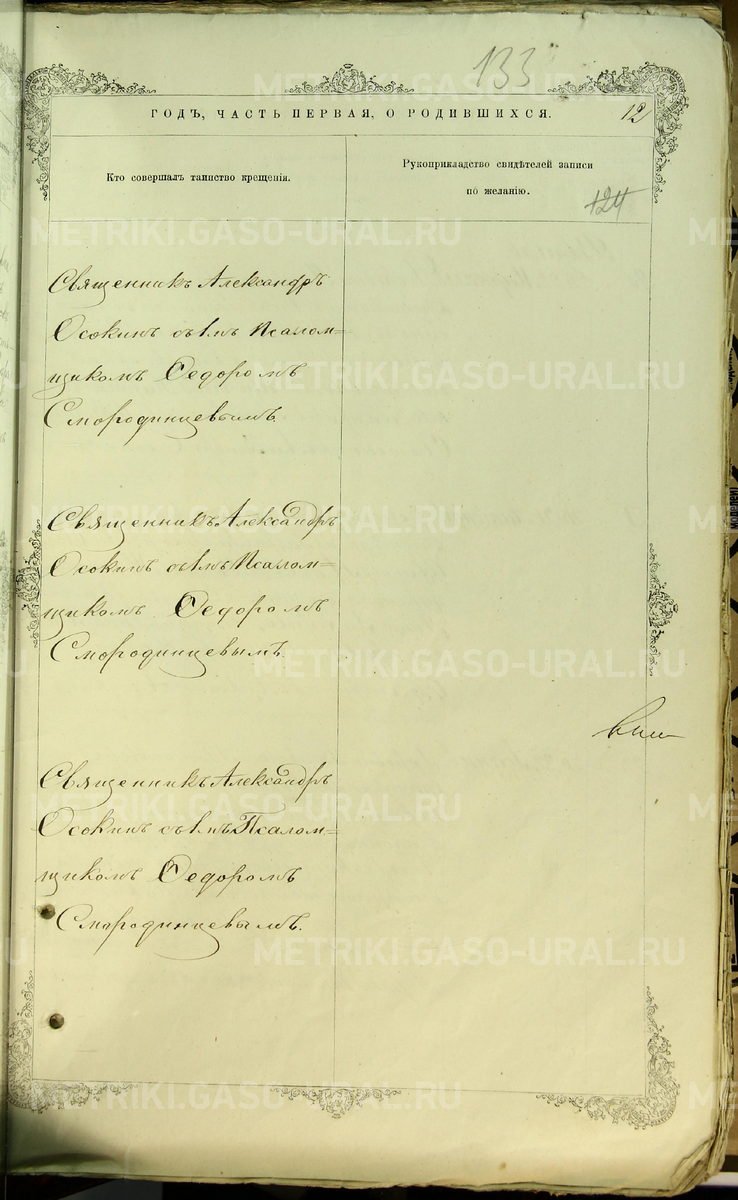 133
ГОДЪ, ЧАСТЬ ПЕРВАЯ, О РОДИВШИХСЯ.
12
Кто совершалъ таинство крещенія.
Рукоприкладство свидѣтелей записи
по желанію.
124
Священникъ Александръ
Осокинъ съ и. Псалом=
щикомъ Ѳедоромъ
Смородинцевымъ
Священникъ Александръ
Осокинъ съ и. Псалом=
щикомъ Ѳедоромъ
Смородинцевымъ
Священникъ Александръ
Осокинъ съ и. Псалом=
щикомъ Ѳедоромъ
Смородинцевымъ.
METRIKI.GASO-URAL.RU